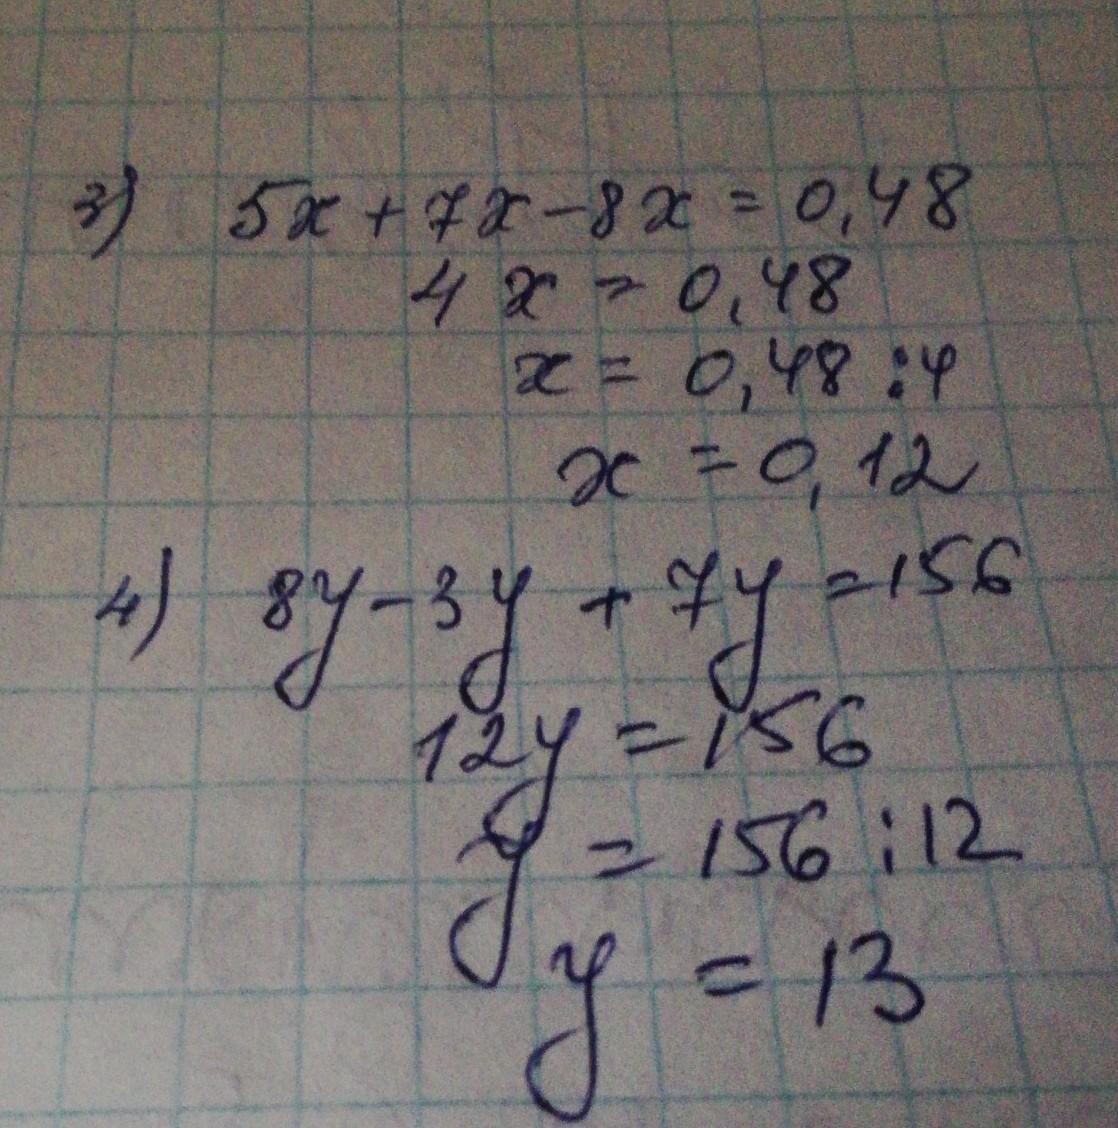 3) 5x + 7x - 8x = 0,48
4x = 0,48
x = 0,48 : 4
x = 0,12
4) 8y - 3y + 7y = 156
12y = 156
y = 156 : 12
y = 13